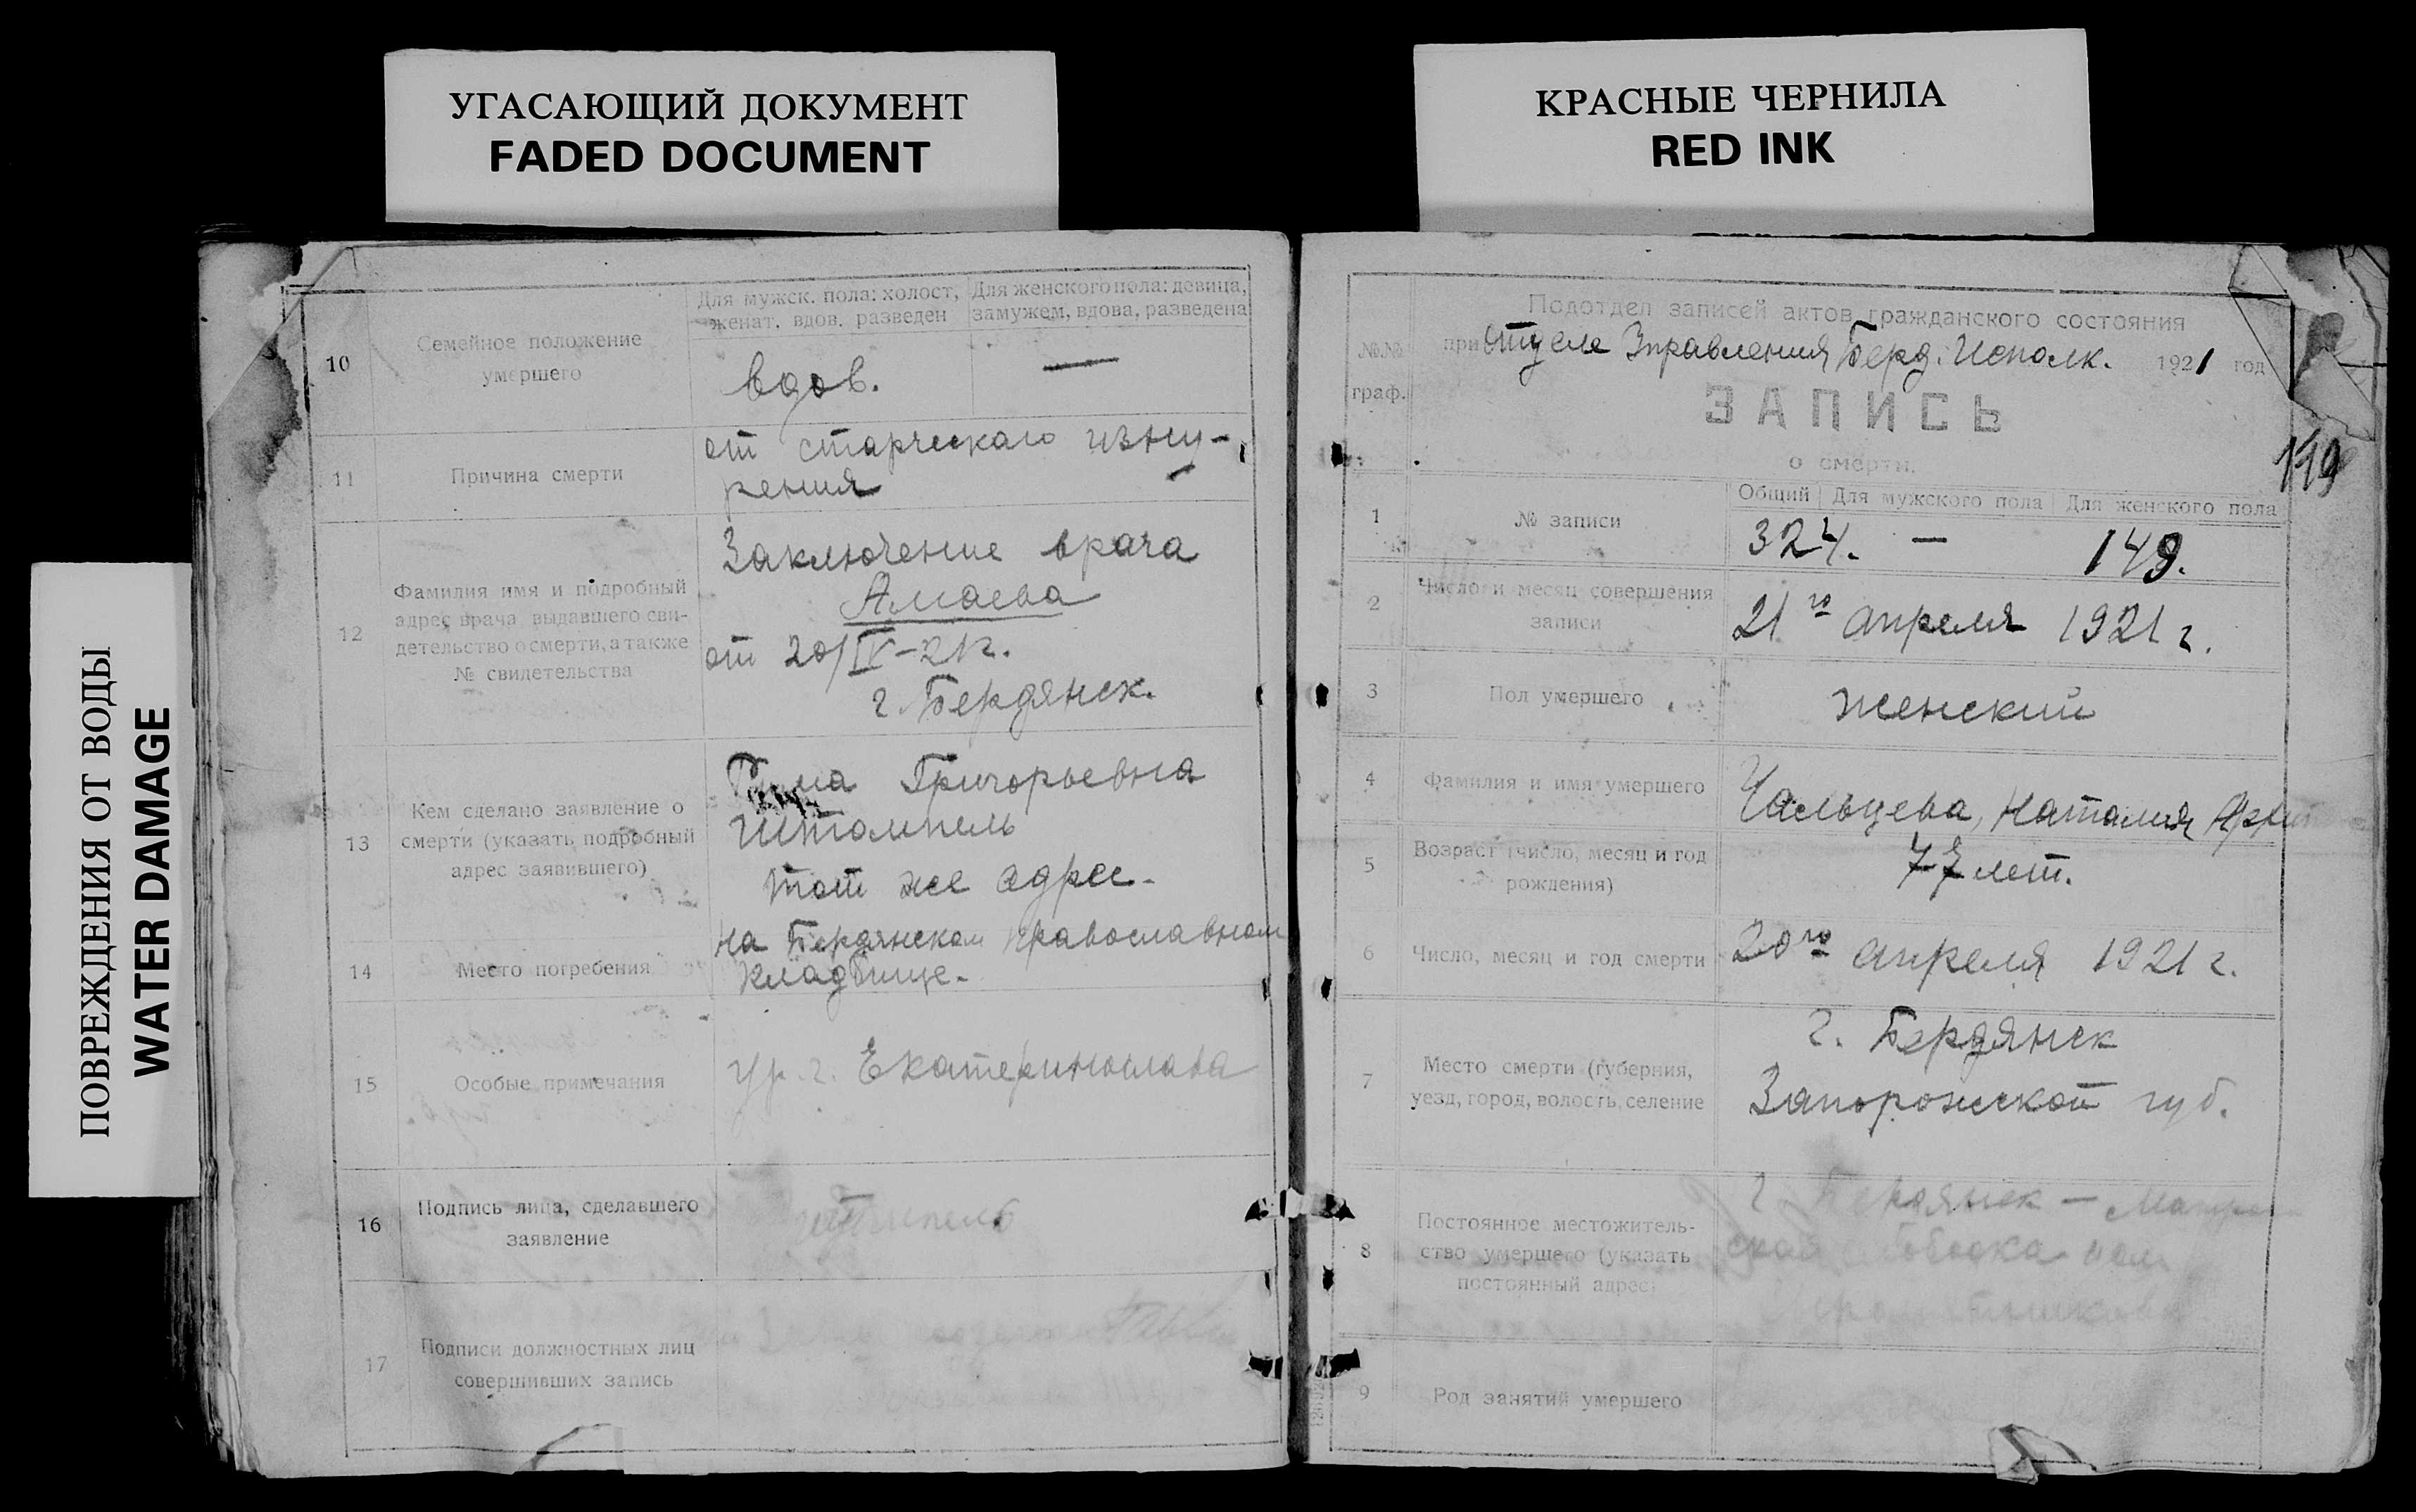 УГАСАЮЩИЙ ДОКУМЕНТ
FADED DOCUMENT
КРАСНЫЕ ЧЕРНИЛА
RED INK
ПОВРЕЖДЕНИЯ ОТ ВОДЫ
WATER DAMAGE
10
Семейное положение
умершего
Для мужск. пола: холост,
женат, вдов, разведен
Для женского пола: девица,
замужем, вдова, разведена
вдов.
—
11
Причина смерти
от старческаго изну-
рения
12
Фамилия имя и подробный
адрес врача выдавшего сви-
детельство о смерти, а также
№ свидетельства
Заключение врача
Амаева
от 20/IV-21г.
г. Бердянск.
13
Кем сделано заявление о
смерти (указать подробный
адрес заявившего)
Григорьевна
Штомпель
тот же адрес.
14
Место погребения
на Бердянском православном
кладбище.
15
Особые примечания
ур. г. Екатеринослава
16
Подпись лица, сделавшего
заявление
17
Подписи должностных лиц
совершивших запись
Подотдел записей актов гражданского состояния
№№
граф.
при отделе Управления Берд. Исполк. 1921 год
ЗАПИСЬ
о смерти.
119
1
№ записи
Общий
Для мужского пола
Для женского пола
324. — 149.
2
Число и месяц совершения
записи
21го апреля 1921 г.
3
Пол умершего
женский
4
Фамилия и имя умершего
Чальцева, Наталия
5
Возраст (число, месяц и год
рождения)
77 лет.
6
Число, месяц и год смерти
20го апреля 1921 г.
7
Место смерти (губерния,
уезд, город, волость, селение
г. Бердянск
Запорожской губ.
8
Постоянное местожитель-
ство умершего (указать
постоянный адрес)
г. Бердянск —
9
Род занятий умершего